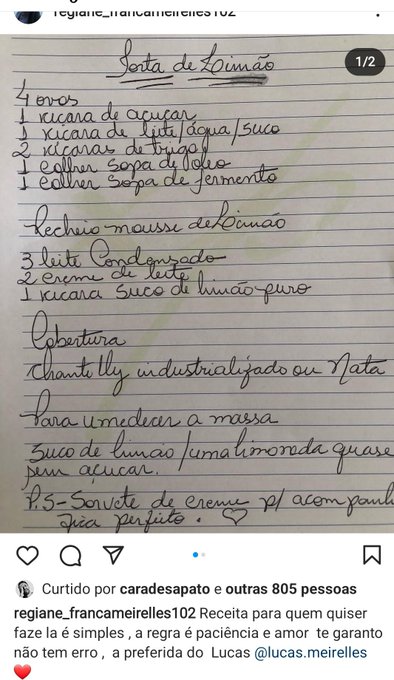 regiane_francameirelles102
1/2
Torta de Limão
4 ovos
1 xicara de açucar
1 xicara de leite/água/suco
2 xicaras de trigo
1 colher sopa de óleo
1 colher sopa de fermento
Recheio-mousse de Limão
3 leite Condensado
2 creme de leite
1 xicara suco de limão-puro
Cobertura
chantelly industrializado ou Nata
Para umedecer a massa
suco de limão/uma limonada quase
sem açucar.
P.S-Sorvete de creme p/ acompanh
fica perfeito.
Curtido por caradesapato e outras 805 pessoas
regiane_francameirelles102 Receita para quem quiser
faze la é simples , a regra é paciência e amor te garanto
não tem erro , a preferida do Lucas @lucas.meirelles
❤️